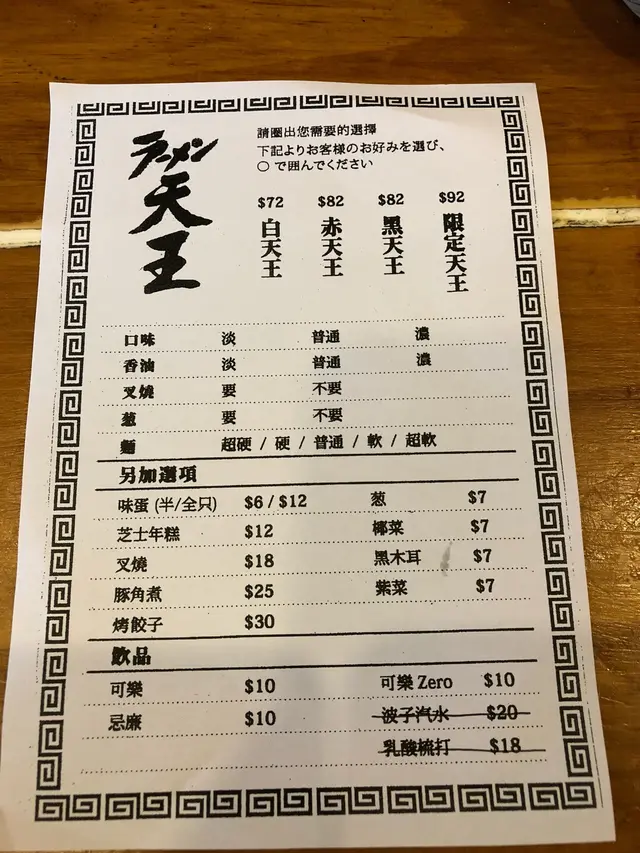 ラーメン
天王
請圈出您需要的選擇
下記よりお客様のお好みを選び、
○ で囲んでください
$72 $82 $82 $92
白天王 赤天王 黑天王 限定天王
口味 淡 普通 濃
香油 淡 普通 濃
叉燒 要 不要
葱 要 不要
麵 超硬 / 硬 / 普通 / 軟 / 超軟
另加選項
味蛋 (半/全只) $6 / $12 葱 $7
芝士年糕 $12 椰菜 $7
叉燒 $18 黑木耳 $7
豚角煮 $25 紫菜 $7
烤餃子 $30
飲品
可樂 $10 可樂 Zero $10
忌廉 $10 波子汽水 $20
乳酸梳打 $18